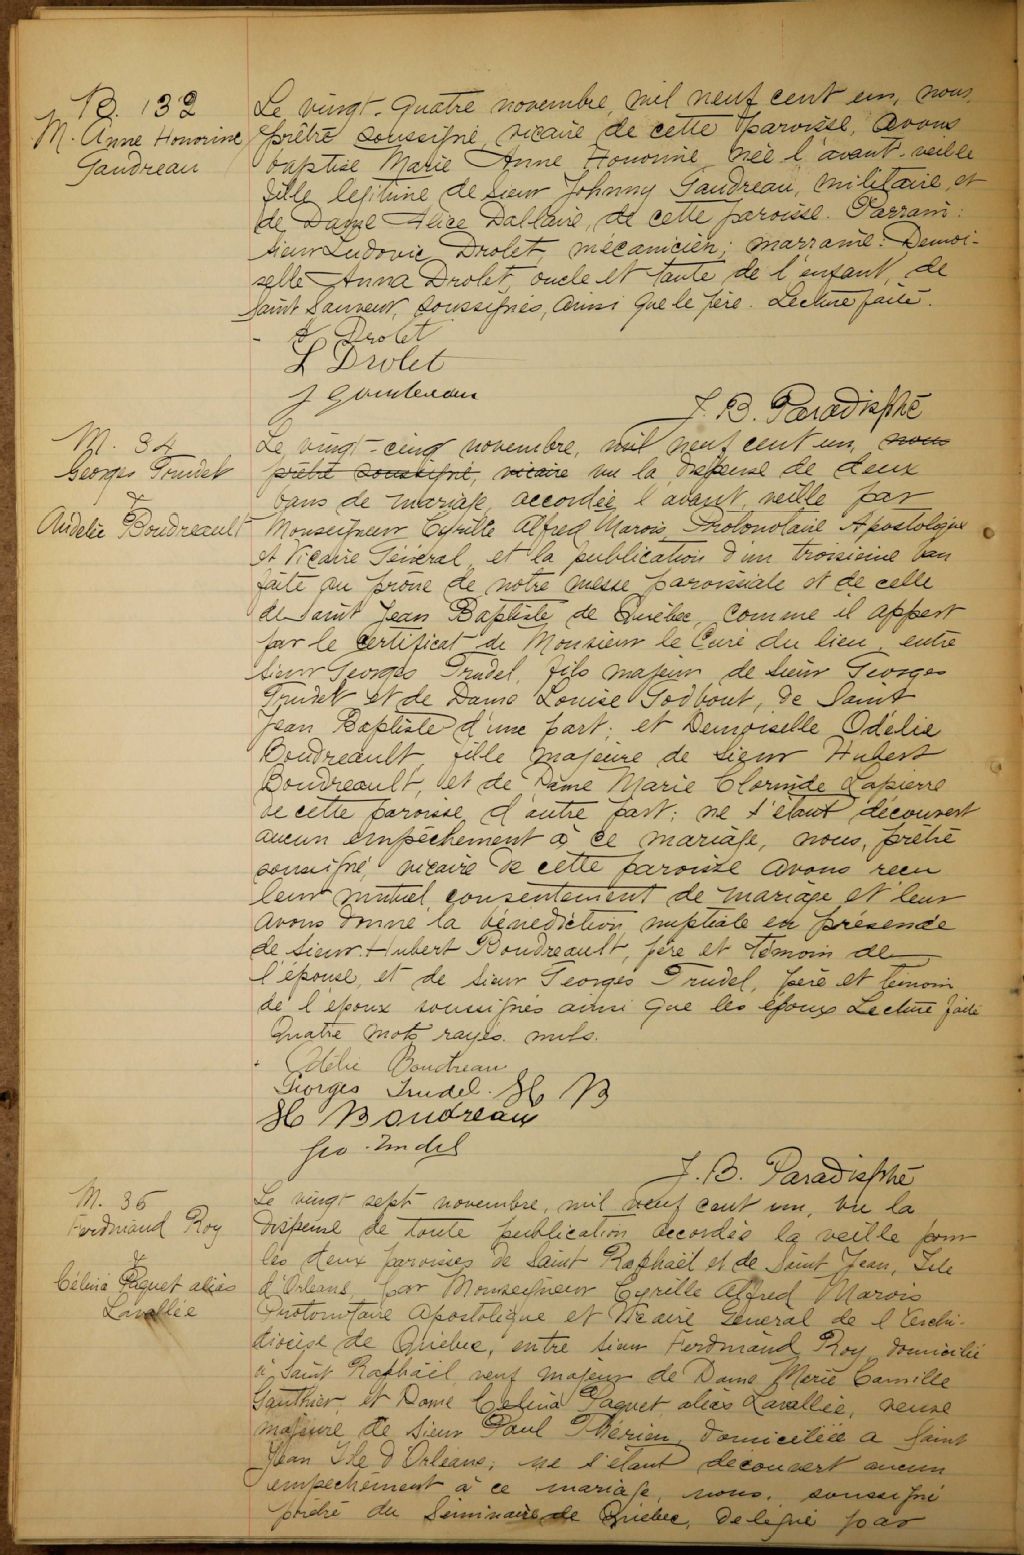 B. 132
M. Anne Honorine
Gaudreau
Le vingt-quatre novembre, mil neuf cent un, nous,
prêtre soussigné, vicaire de cette paroisse, avons
baptisé Marie Anne Honorine, née l'avant-veille
fille légitime de Sieur Johnny Gaudreau, militaire, et
de Dame Alice Dallaire, de cette paroisse. Parrain:
sieur Ludovic Drolet, mécanicien; marraine: Demoi-
selle Anna Drolet, oncle et tante de l'enfant, de
Saint Sauveur, soussignés, ainsi que le père. Lecture faite.
Drolet
L Drolet
J Gaudreau
J. B. Paradis ptre
M. 34
Georges Trudel
&
Audélie Boudreault
Le vingt-cinq novembre, mil neuf cent un, nous
prêtre soussigné, vicaire vu la dispense de deux
bans de mariage accordée l'avant veille par
Monseigneur Cyrille Alfred Marois, Protonotaire Apostolique
et Vicaire Général, et la publication d'un troisième ban
faite au prône de notre messe paroissiale et de celle
de Saint Jean Baptiste de Québec, comme il appert
par le certificat de Monsieur le Curé du lieu, entre
Sieur Georges Trudel, fils majeur de Sieur Georges
Trudel et de Dame Louise Godbout, de Saint
Jean Baptiste d'une part; et Demoiselle Odélie
Boudreault, fille majeure de Sieur Hubert
Boudreault, et de Dame Marie Clorinde Lapierre
de cette paroisse d'autre part; ne s'étant découvert
aucun empêchement à ce mariage, nous, prêtre
soussigné, vicaire de cette paroisse avons reçu
leur mutuel consentement de mariage et leur
avons donné la bénédiction nuptiale en présence
de Sieur Hubert Boudreault, père et témoin de
l'épouse, et de Sieur Georges Trudel, père et témoin
de l'époux soussignés ainsi que les époux Lecture faite
Quatre mots rayés nuls.
Odélie Boudreau
Georges Trudel. H B
H Boudreau
Geo. Trudel
J. B. Paradis ptre
M. 35
Ferdinand Roy
&
Célina Paquet aliàs
Lavallée
Le vingt sept novembre, mil neuf cent un, vu la
dispense de toute publication accordée la veille pour
les deux paroisses de Saint Raphaël et de Saint Jean, Isle
d'Orléans, par Monseigneur Cyrille Alfred Marois
Protonotaire Apostolique et Vicaire Général de l'Archi-
diocèse de Québec, entre Sieur Ferdinand Roy domicilié
à Saint Raphaël, veuf majeur de Dame Marie Camille
Gauthier, et Dame Celina Paquet aliàs Lavallée, veuve
majeure de Sieur Paul Thérien, domiciliée à Saint
Jean Ile d'Orléans; ne s'étant découvert aucun
empêchement à ce mariage, nous, soussigné
prêtre du Séminaire de Québec, délégué par